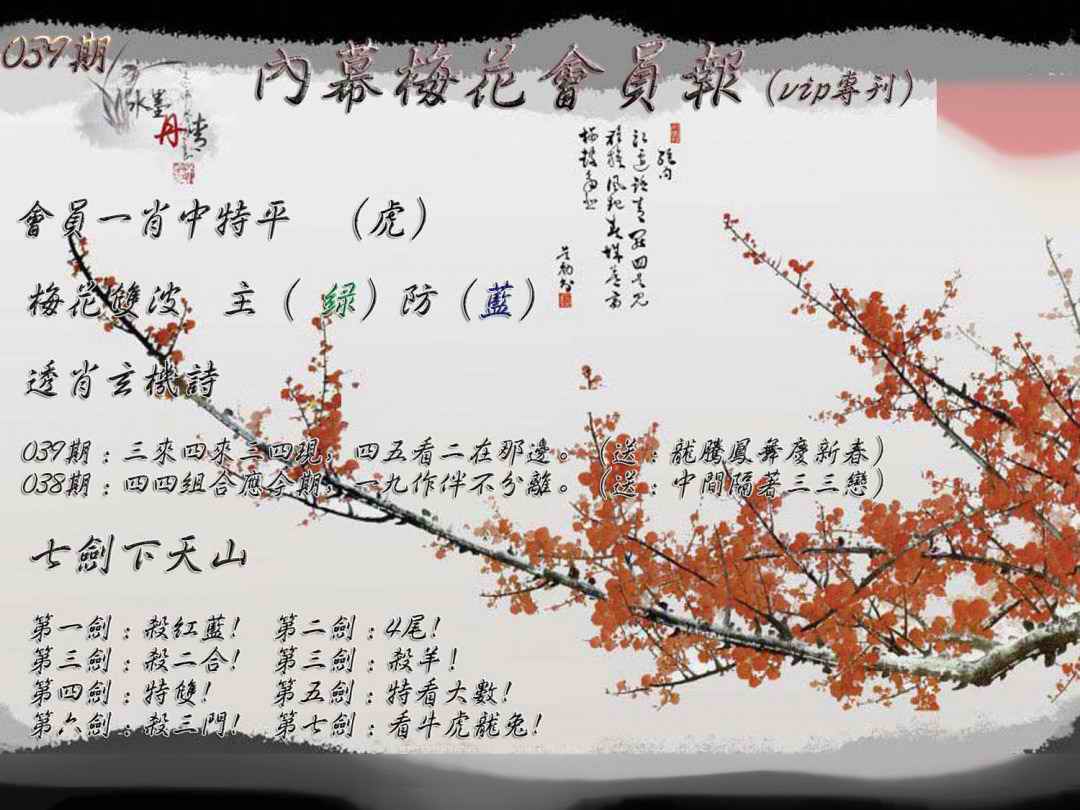 039期
內幕梅花會員報(vip專刊)
水墨
丹
會員一肖中特平 (虎)
梅花雙波 主(綠)防(藍)
透肖玄機詩
039期:三來四來三四現,四五看二在那邊。(送:龍騰鳳舞慶新春)
038期:四四組合應今期,一九作伴不分離。(送:中間隔著三三戀)
七劍下天山
第一劍:殺紅藍! 第二劍:4尾!
第三劍:殺二合! 第三劍:殺羊!
第四劍:特雙! 第五劍:特看大數!
第六劍:殺三門! 第七劍:看牛虎龍兔!